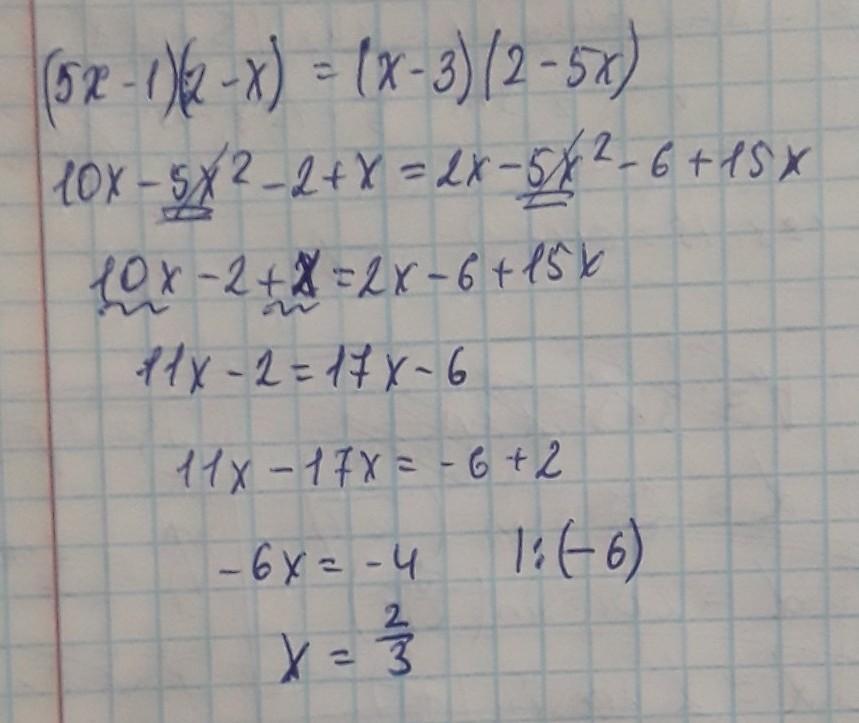 (5x - 1)(2 - x) = (x - 3)(2 - 5x)
10x - 5x² - 2 + x = 2x - 5x² - 6 + 15x
10x - 2 + x = 2x - 6 + 15x
11x - 2 = 17x - 6
11x - 17x = -6 + 2
-6x = -4 |:(-6)
x = 2/3